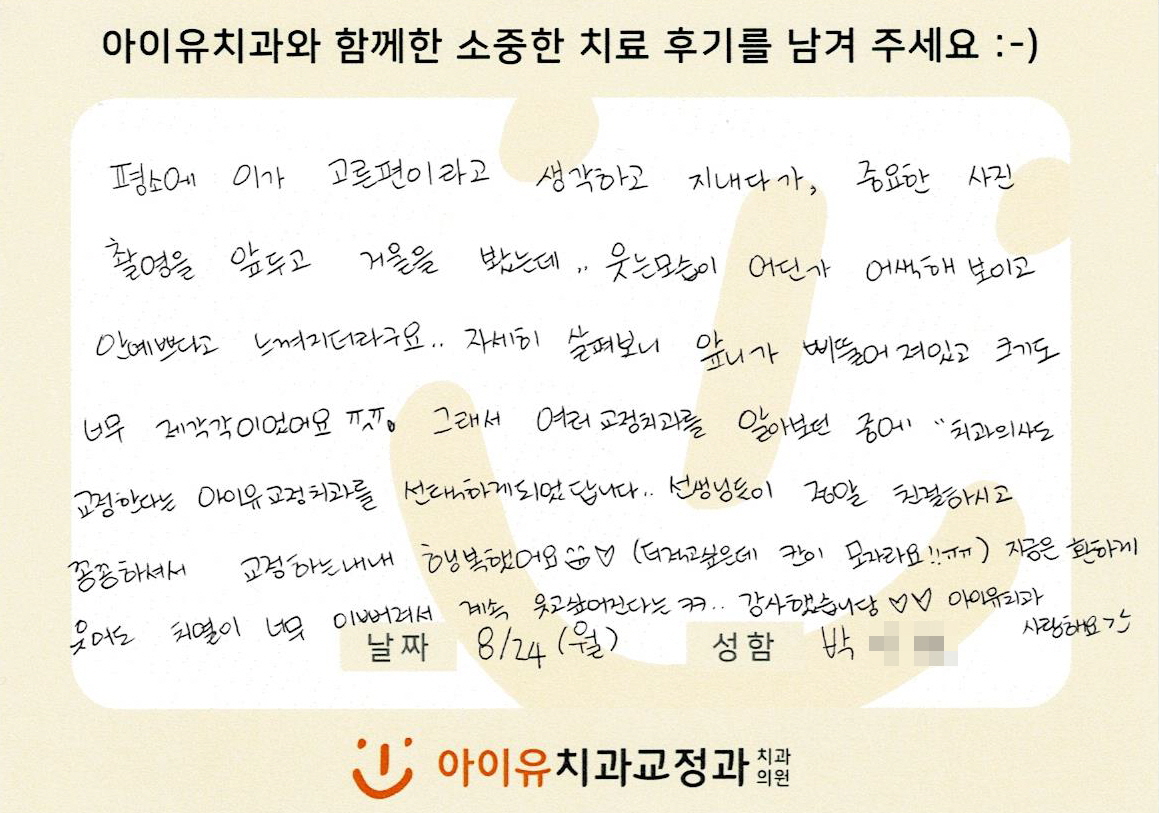 아이유치과와 함께한 소중한 치료 후기를 남겨 주세요 :-)
평소에 이가 고른편이라고 생각하고 지내다가, 중요한 사진
촬영을 앞두고 거울을 봤는데.. 웃는모습이 어딘가 어색해 보이고
안예쁘다고 느껴지더라구요.. 자세히 살펴보니 앞니가 삐뚤어져있고 크기도
너무 제각각이었어요 ㅠㅠ. 그래서 여러 교정치과를 알아보던 중에 "치과의사도
교정한다는 아이유교정치과를 선택하게되었답니다.. 선생님들이 정말 친절하시고
꼼꼼하셔서 교정하는내내 행복했어요 ♡ (더적고싶은데 칸이 모자라요!!ㅠㅠ) 지금은 환하게
웃어도 치열이 너무 이뻐려서 계속 웃고싶어진다는 ㅋㅋ.. 감사했습니당 ♡♡ 아이유치과
사랑해요
날짜 8/24 (월) 성함 박
아이유치과교정과 치과
의원